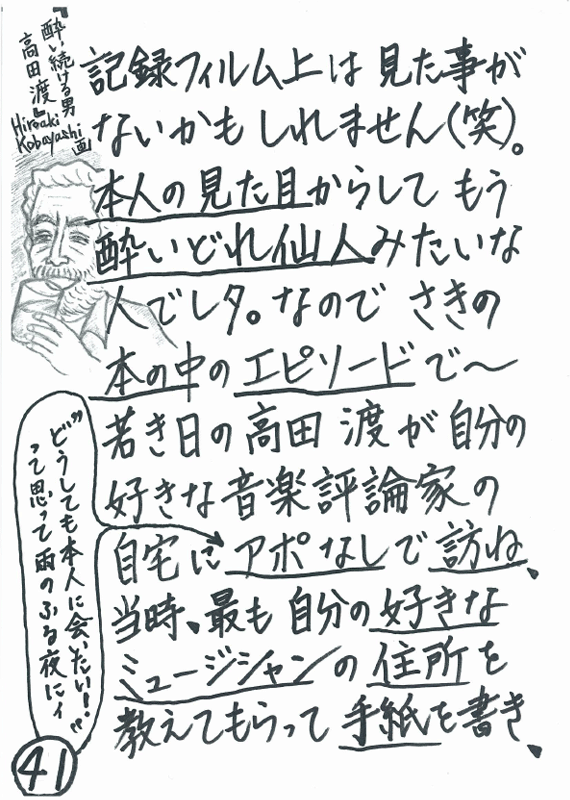 『酔い続ける男
高田渡』
Hiroaki
Kobayashi
画
記録フィルム上は 見た事が
ないかもしれません(笑)。
本人の見た目からして もう
酔いどれ仙人みたいな
人でしタ。なので さきの
本の中のエピソードで〜
若き日の高田渡が自分の
好きな音楽評論家の
自宅にアポなしで訪ね、
当時、最も自分の好きな
ミュージシャンの住所を
教えてもらって手紙を書き、
”どうしても本人に会いたい!”
って思って雨のふる夜にィ
41